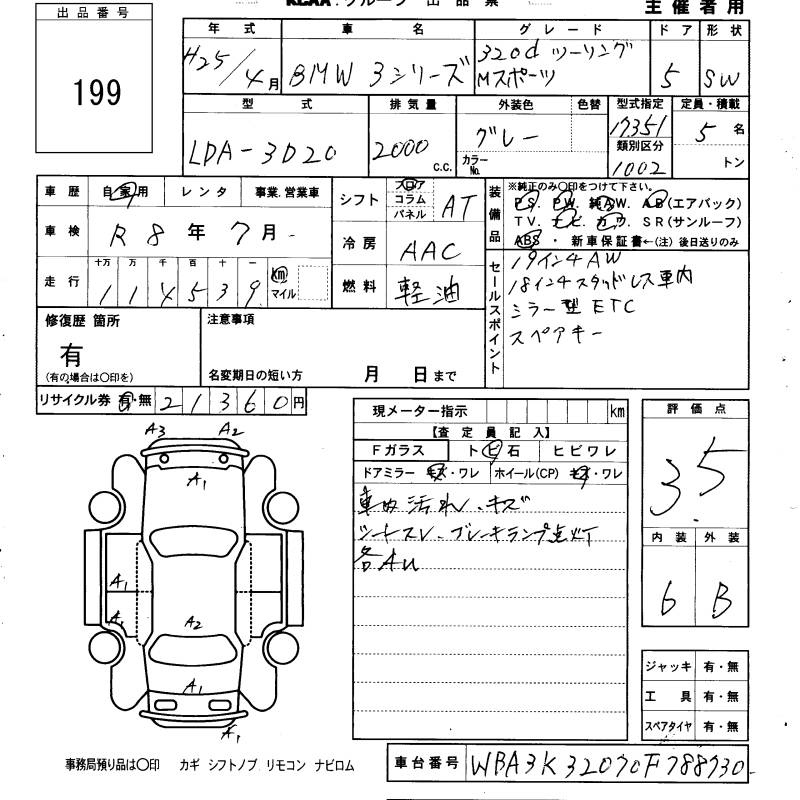 KCAA.グループ 出品票
主催者用
出品番号
199
年式 車名 グレード ドア 形状
H25/4月 BMW 3シリーズ 320d ツーリング Mスポーツ 5 SW
型式 排気量 外装色 色替 型式指定 定員・積載
LDA-3D20 2000 C.C. グレー 17351 5名
カラーNo. 類別区分 1002 トン
車歴 自家用 レンタ 事業.営業車
シフト フロア コラム パネル AT
車検 R8年7月
冷房 AAC
走行 十万 万 千 百 十 一
114539 km マイル
燃料 軽油
装備品 ※純正のみ○印をつけて下さい。
PS. PW. 純AW. AB(エアバック)
TV. ナビ. カワ. SR(サンルーフ)
ABS・新車保証書←(注)後日送りのみ
セールスポイント
19インチAW
18インチスタッドレス車内
ミラー型ETC
スペアキー
修復歴 箇所
有
(有の場合は○印を)
注意事項
名変期日の短い方 月 日まで
リサイクル券 有・無 21360円
現メーター指示 km
【査定員記入】
Fガラス トビ石 ヒビワレ
ドアミラー キズ・ワレ ホイール(CP) キズ・ワレ
車内汚れ、キズ
シートスレ、ブレーキランプ点灯
各AU
評価点
3.5
内装 外装
6 B
A3 A2
A1
A1
A1
A2
A1
A1
ジャッキ 有・無
工具 有・無
スペアタイヤ 有・無
事務局預り品は○印 カギ シフトノブ リモコン ナビロム
車台番号 WBA3K32070F788730